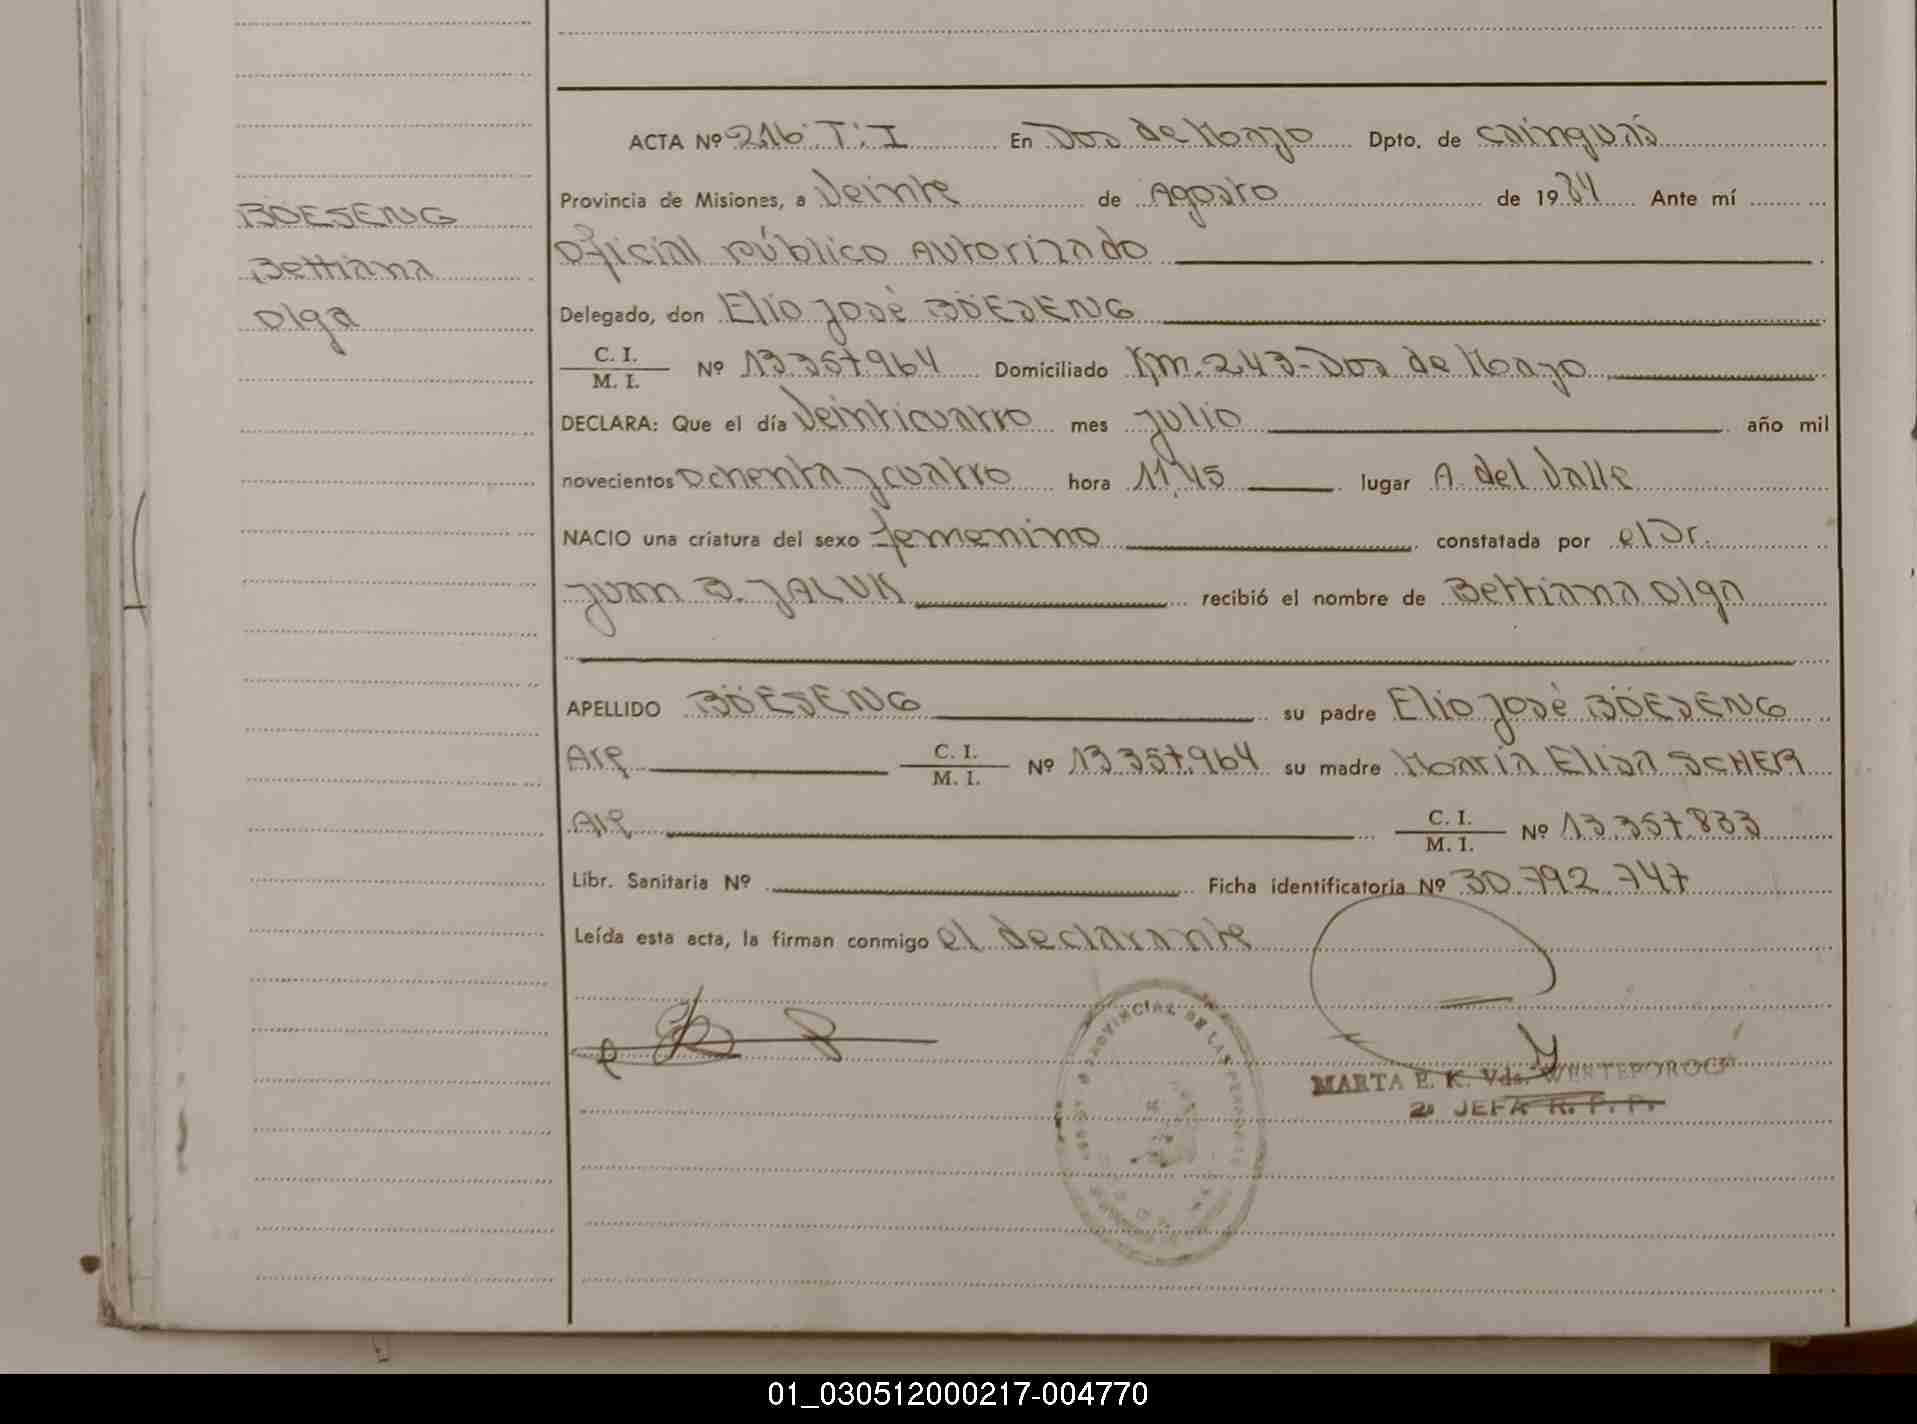 BÖESENG
Bettiana
Olga
ACTA Nº 216. T: I En Dos de Mayo Dpto. de Cainguás
Provincia de Misiones, a Veinte de Agosto de 1984 Ante mí
Oficial Público Autorizado
Delegado, don Elio José BÖESENG
C. I.
M. I. Nº 13.357.964 Domiciliado Km. 243-Dos de Mayo
DECLARA: Que el día Veinticuatro mes Julio año mil
novecientos Ochenta y cuatro hora 11,45 lugar A. del Valle
NACIO una criatura del sexo femenino constatada por el Dr.
Juan B. JALUK recibió el nombre de Bettiana Olga
APELLIDO BÖESENG su padre Elio José BÖESENG
Arg C. I.
M. I. Nº 13.357.964 su madre María Elisa SCHER
Arg C. I.
M. I. Nº 13.357.833
Libr. Sanitaria Nº Ficha identificatoria Nº 30.792.747
Leída esta acta, la firman conmigo el declarante
PROVINCIAL DE LAS PERSONAS
MARTA E. K. Vda.
2º JEFA R. P. P.
01_030512000217-004770